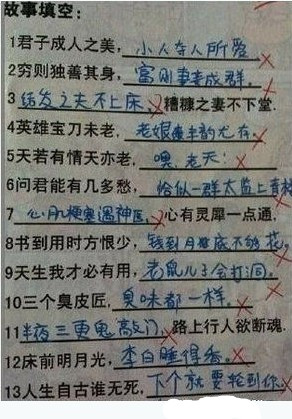 故事填空：
1君子成人之美，小人夺人所爱
2穷则独善其身，富则妻妾成群。
3结发之夫不上床，糟糠之妻不下堂.
4英雄宝刀未老，老娘风韵尤存
5天若有情天亦老，嘿，老天！
6问君能有几多愁，恰似一群太监上青楼
7心肌梗塞遇神医，心有灵犀一点通.
8书到用时方恨少，钱到月底不够花。
9天生我才必有用，老鼠儿子会打洞。
10三个臭皮匠，臭味都一样。
11半夜三更鬼敲门，路上行人欲断魂.
12床前明月光，李白睡得香。
13人生自古谁无死，下个就要轮到你